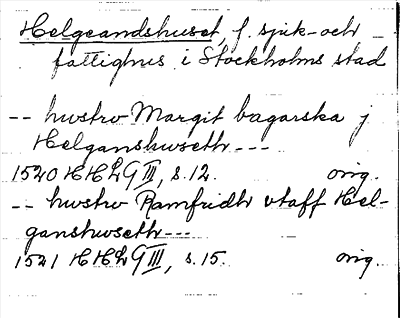 Helgeandshuset, f. sjuk- och
fattighus i Stockholms stad
-- hustro Margit bagarska j
Helganshwseth ---
1520 HHLG III, s. 12. orig.
-- hustro Ramfridh vtaff Hel-
ganshwseth ---
1521 HHLG III, s. 15. orig.